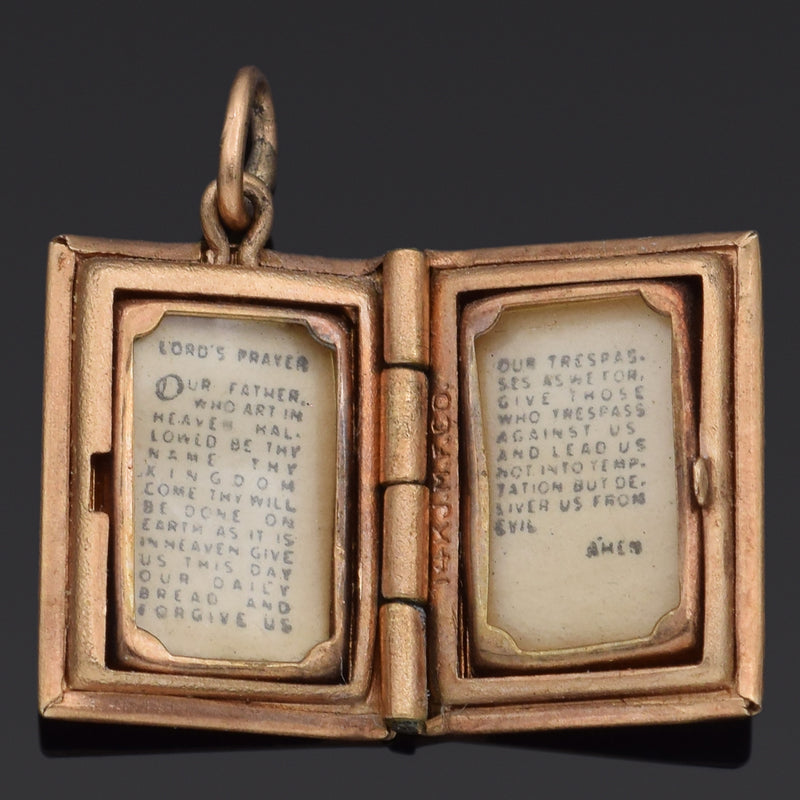 LORD'S PRAYER
OUR FATHER,
WHO ART IN
HEAVEN HAL-
LOWED BE THY
NAME THY
KINGDOM
COME THY WILL
BE DONE ON
EARTH AS IT IS
IN HEAVEN GIVE
US THIS DAY
OUR DAILY
BREAD AND
FORGIVE US
14K J.M.F.CO.
OUR TRESPAS-
SES AS WE FOR,
GIVE THOSE
WHO TRESPASS
AGAINST US
AND LEAD US
NOT INTO TEMP-
TATION BUT DE-
LIVER US FROM
EVIL
AMEN